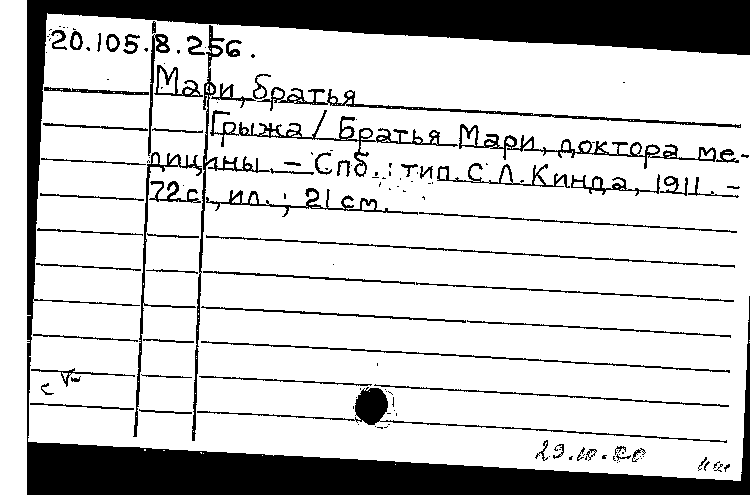 20.105.8.256.
Мари, братья
Грыжа / Братья Мари, доктора ме-
дицины. – Спб. : тип. С.Л. Кинда, 1911. –
72 с., ил. ; 21 см.
29.10.80